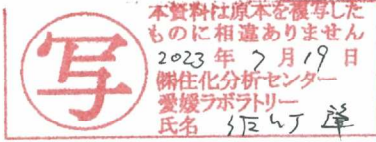 写
本資料は原本を複写した
ものに相違ありません
2023年7月19日
㈱住化分析センター
愛媛ラボラトリー
氏名